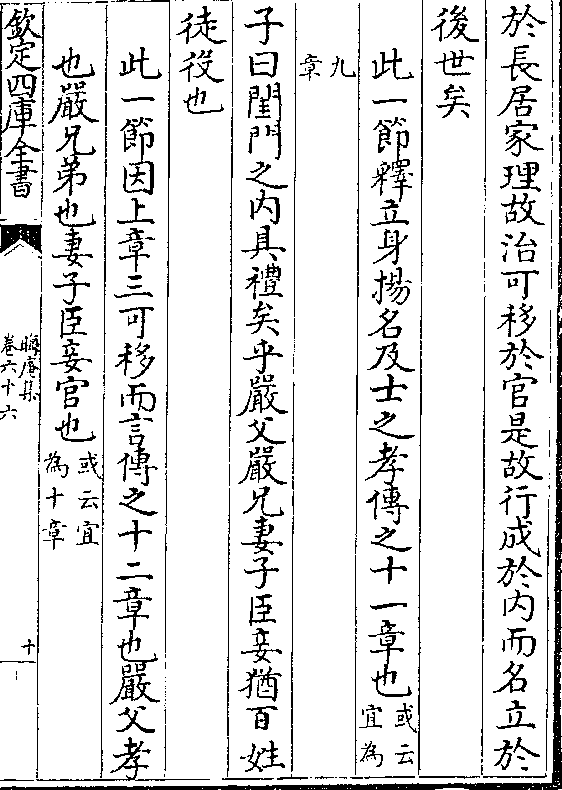 於長居家理故治可移於官是故行成於内而名立於
後世矣
此一節釋立身揚名及士之孝傳之十一章也或云宜為
九章
子曰閨門之内具禮矣乎嚴父嚴兄妻子臣妾猶百姓
徒役也
此一節因上章三可移而言傳之十二章也嚴父孝
也嚴兄弟也妻子臣妾官也或云宜為十章
欽定四庫全書
晦庵集
卷六十六
十